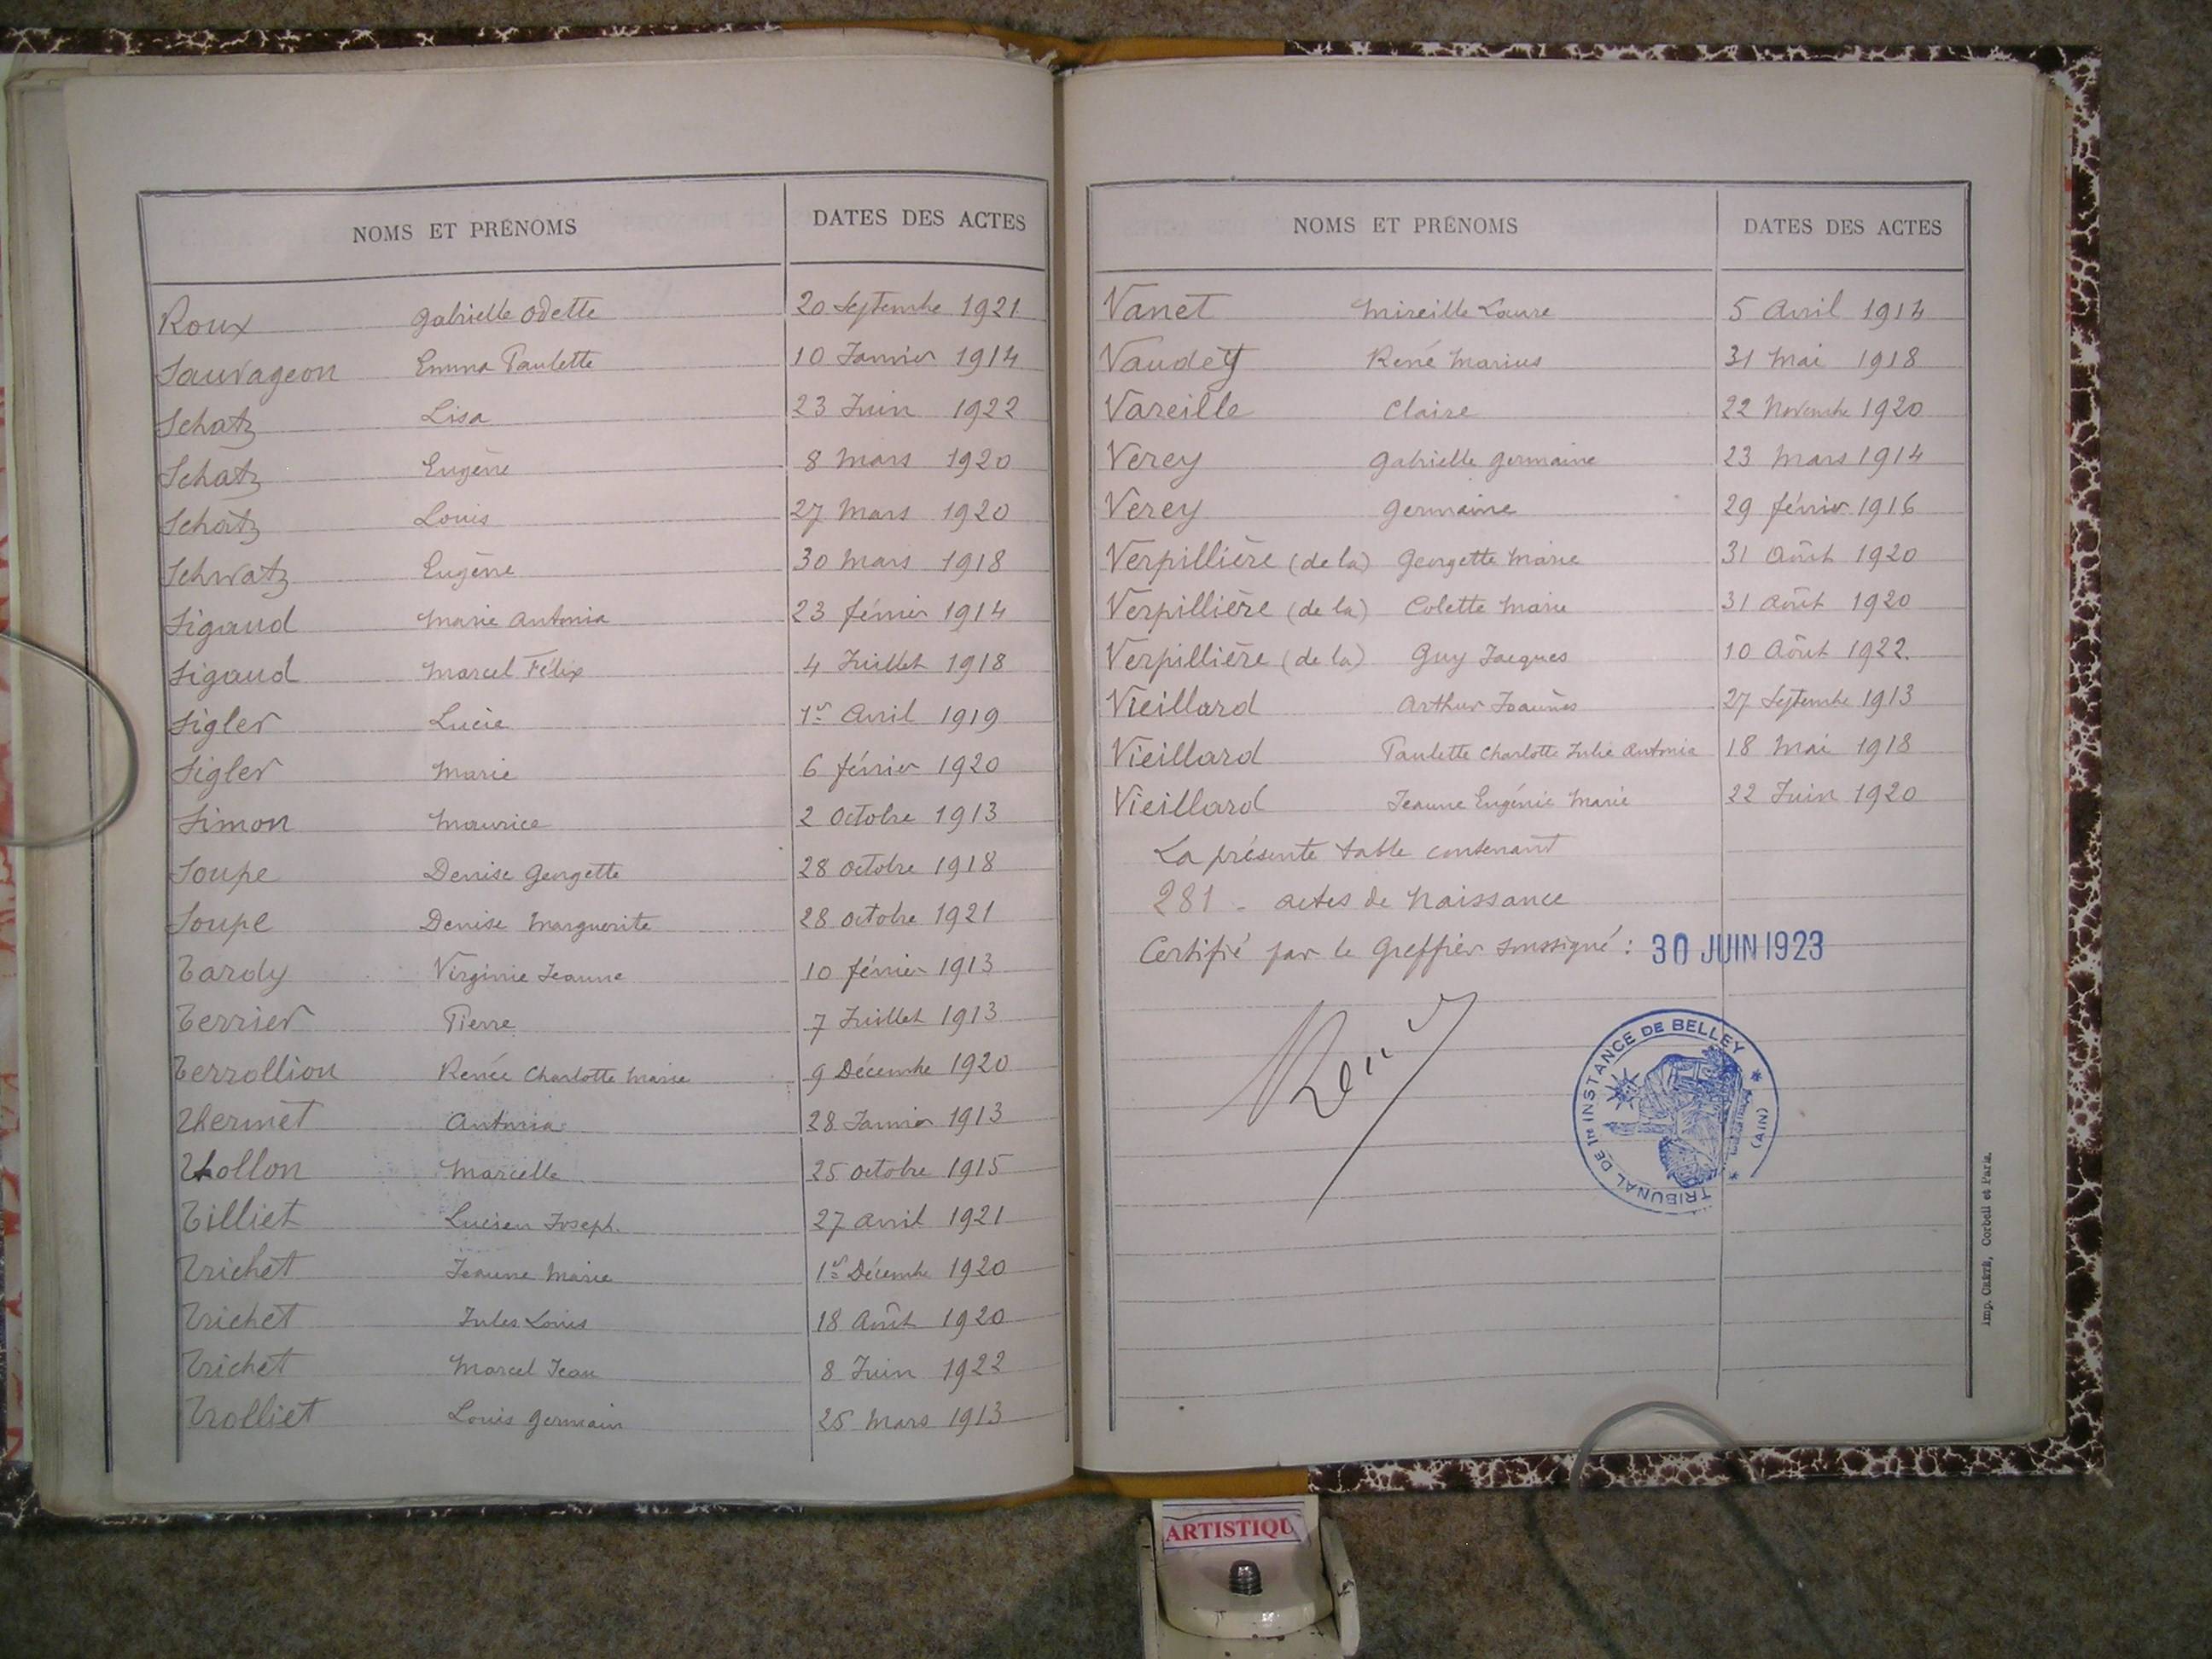 NOMS ET PRÉNOMS DATES DES ACTES
Roux Gabrielle Odette 20 Septembre 1921
Sauvageon Emma Paulette 10 Janvier 1914
Schatz Lisa 23 Juin 1922
Schatz Eugène 8 Mars 1920
Schatz Louis 27 Mars 1920
Schwatz Eugène 30 Mars 1918
Sigaud Marie Antonia 23 février 1914
Sigaud Marcel Félix 4 Juillet 1918
Sigler Lucie 1er Avril 1919
Sigler Marie 6 février 1920
Simon Maurice 2 Octobre 1913
Soupe Denise Georgette 28 Octobre 1918
Soupe Denise Marguerite 28 Octobre 1921
Tardy Virginie Jeanne 10 février 1913
Terrier Pierre 7 Juillet 1913
Terrollion Renée Charlotte Marie 9 Décembre 1920
Thermet Antonia 28 Janvier 1913
Thollon Marcelle 25 octobre 1915
Tilliet Lucien Joseph 27 avril 1921
Trichet Jeanne Marie 1er Décembre 1920
Trichet Jules Louis 18 Août 1920
Trichet Marcel Jean 8 Juin 1922
Trolliet Louis Germain 25 Mars 1913
NOMS ET PRÉNOMS DATES DES ACTES
Vanet Mireille Laure 5 Avril 1914
Vaudey René Marius 31 Mai 1918
Vareille Claire 22 Novembre 1920
Verey Gabrielle Germaine 23 Mars 1914
Verey Germaine 29 février 1916
Verpillière (de la) Georgette Marie 31 Août 1920
Verpillière (de la) Colette Marie 31 Août 1920
Verpillière (de la) Guy Jacques 10 Août 1922.
Vieillard Arthur Joannès 27 Septembre 1913
Vieillard Paulette Charlotte Julie Antonia 18 Mai 1918
Vieillard Jeanne Eugénie Marie 22 Juin 1920
La présente table contenant
281 - actes de Naissance
Certifié par le Greffier soussigné : 30 JUIN 1923
TRIBUNAL DE 1re INSTANCE DE BELLEY * (AIN) *
Imp. CRÉTÉ, Corbeil et Paris.
ARTISTIQU